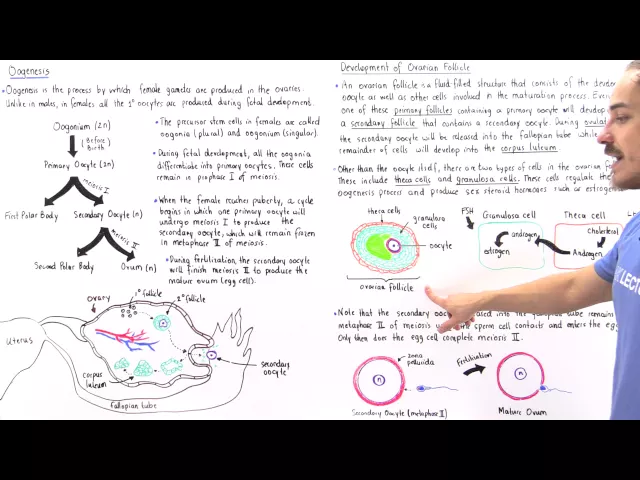 Oogenesis
• Oogenesis is the process by which female gametes are produced in the ovaries.
Unlike in males, in females all the 1° oocytes are produced during fetal development.
Oogonium (2n)
(Before
Birth)
Primary Oocyte (2n)
meiosis I
First Polar Body
Secondary Oocyte (n)
meiosis II
Second Polar Body
Ovum (n)
• The precursor stem cells in females are called
oogonia (plural) and oogonium (singular).
• During fetal development, all the oogonia
differentiate into primary oocytes. These cells
remain in prophase I of meiosis.
• When the female reaches puberty, a cycle
begins in which one primary oocyte will
undergo meiosis I to produce the
secondary oocyte, which will remain frozen
in metaphase II of meiosis.
• During fertilization, the secondary oocyte
will finish meiosis II to produce the
mature ovum (egg cell).
1° follicle
2° follicle
ovary
Uterus
secondary
oocyte
corpus
luteum
Fallopian tube
Development of Ovarian Follicle
• An ovarian follicle is a fluid-filled structure that consists of the
oocyte as well as other cells involved in the maturation process.
one of these primary follicles containing a primary oocyte will develop
a secondary follicle that contains a secondary oocyte. During
the secondary oocyte will be released into the fallopian tube while
remainder of cells will develop into the corpus luteum.
• Other than the oocyte itself, there are two types of cells in the ovarian
These include theca cells and granulosa cells. These cells regulate the
oogenesis process and produce sex steroid hormones such as estrogen
theca cells
granulosa
cells
oocyte
ovarian follicle
FSH
Granulosa cell
androgen
estrogen
Theca cell
Cholesterol
Androgen
• Note that the secondary oocyte into the fallopian tube
metaphase II of meiosis sperm cell contacts and enters the
Only then does the egg cell complete meiosis II.
zona
pellucida
n
Fertilization
n
Secondary Oocyte (metaphase II)
Mature Ovum
LECT